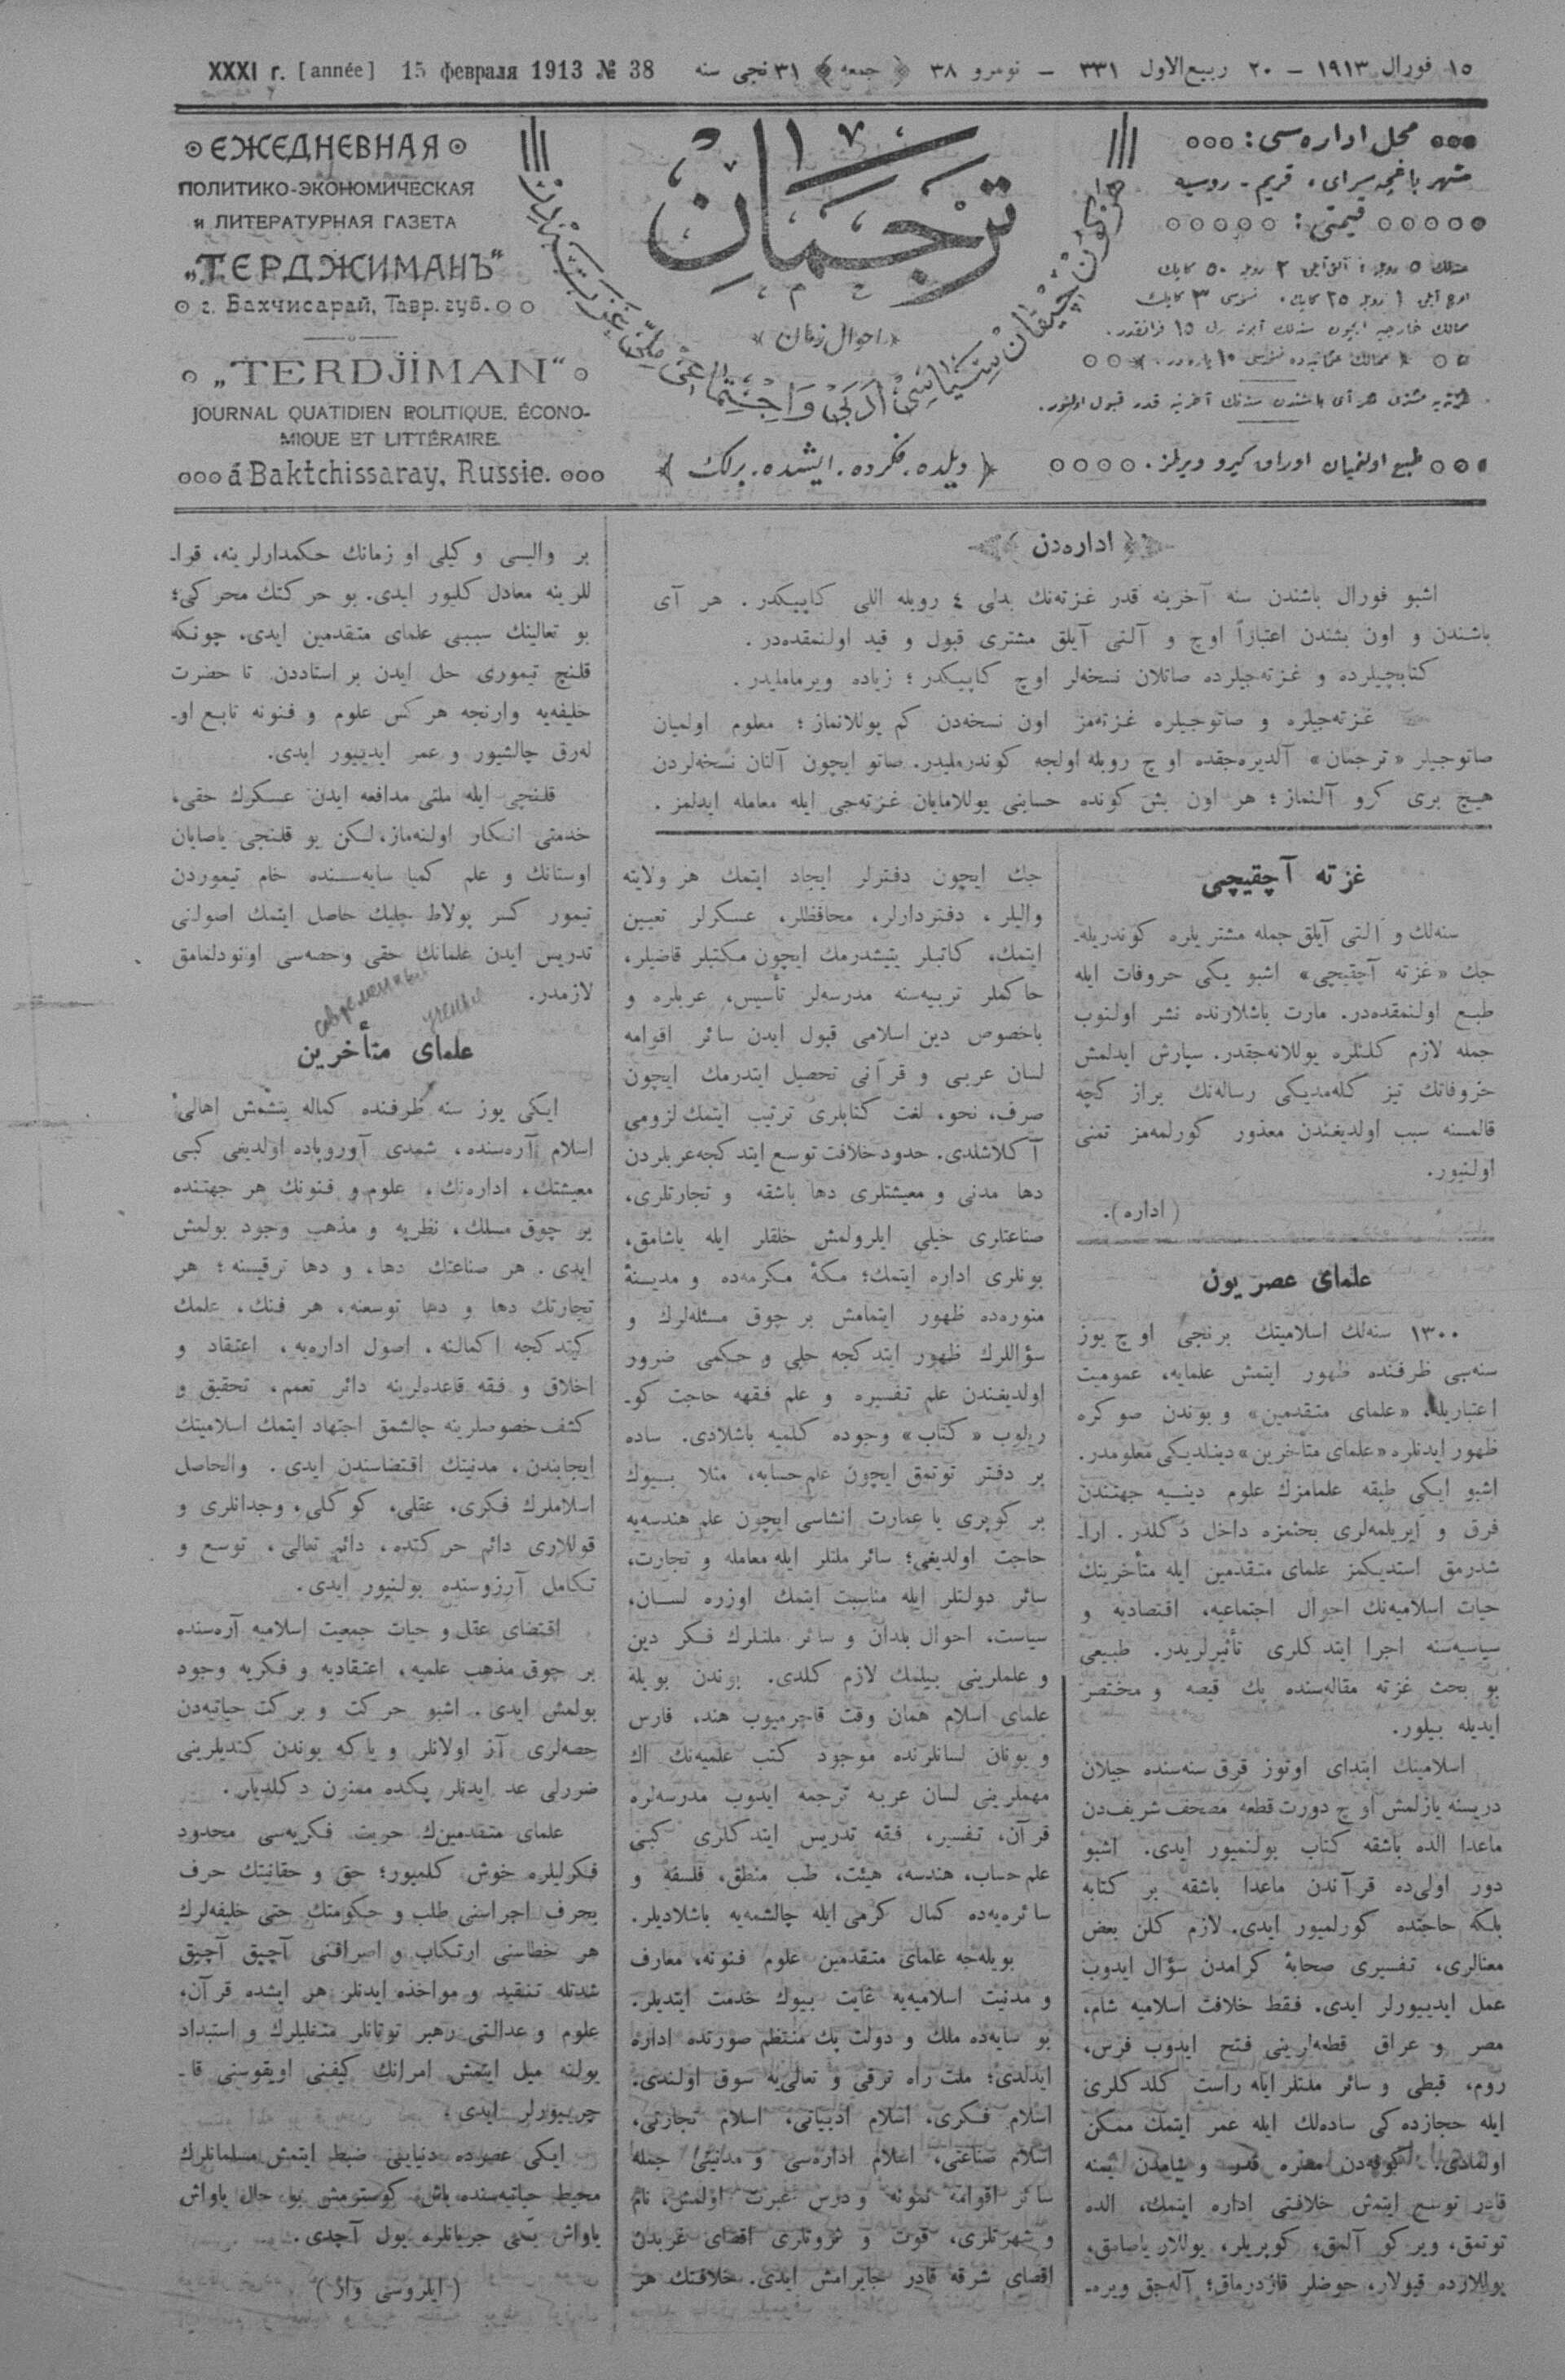 XXXI г. [année] 15 февраля 1913 № 38
١٥ فورال ١٩١٣ – ٢٠ ربيع‌الاول ٣٣١ – نومرو ٣٨ ﴿ جمعه ﴾ ٣١ نجى سنه
ЕЖЕДНЕВНАЯ
ПОЛИТИКО-ЭКОНОМИЧЕСКАЯ
и ЛИТЕРАТУРНАЯ ГАЗЕТА
„ТЕРДЖИМАНЪ“
г. Бахчисарай, Тавр. губ.
„TERDJIMAN“
JOURNAL QUATIDIEN POLITIQUE, ÉCONO-
MIQUE ET LITTÉRAIRE
á Baktchissaray, Russie.
ترجمان
احوال زمان
﴿ ديلده. فكرده. ايشده. برلك ﴾
محل اداره‌سى :
شهر باغچه‌سراى، قريم - روسيه
قيمتى :
طبع اولنميان اوراق كيرو ويرلمز .
اداره‌دن
اشبو فورال باشندن سنه آخرينه قدر غزته‌نك بدلى ٤ روبله اللى كاپيكدر . هر آى
باشندن و اون بشندن اعتباراً اوچ و آلتى آيلق مشترى قبول و قيد اولنمقده‌در .
كتابچيلرده و غزته‌جيلرده صاتلان نسخه‌لر اوچ كاپيكدر ؛ زياده ويرماملیدر .
غزته‌جيلره و صاتوجيلره غزته‌مز اون نسخه‌دن كم يوللانماز ؛ معلوم اولميان
صاتوجيلر «ترجمان» آلديره‌جقده اوچ روبله اولجه كوندرمليدر. صاتو ايچون آلنان نسخه‌لردن
هيچ برى كرو آلنماز ؛ هر اون بش كونده حسابنى يوللامايان غزته‌جى ايله معامله ايدلمز .
غزته آچقيچى
سنه‌لك و آلتى آيلق جمله مشتريلره كوندريله-
جك «غزته آچقيچى» اشبو يكى حروفات ايله
طبع اولنمقده‌در. مارت باشلارنده نشر اولنوب
جمله لازم كلنلره يوللانه‌جقدر. سپارش ايدلمش
حروفاتك تيز كله‌مديكى رساله‌نك براز كچه
قالمسنه سبب اولديغندن معذور كورلمه‌مز تمنى
اولنيور.
(اداره).
علماى عصريون
١٣٠٠ سنه‌لك اسلاميتك برنجى اوچ يوز
سنه‌سى ظرفنده ظهور ايتمش علمايه، عموميت
اعتباريله، «علماى متقدمين» و بوندن صوكره
ظهور ايدنلره «علماى متأخرين» دينلديكى معلومدر.
اشبو ايكى طبقه علمامزك علوم دينيه جهتندن
فرق و آيريلمه‌لرى بحثمزه داخل دكلدر. آرا-
شدرمق استديكمز علماى متقدمين ايله متأخرينك
حيات اسلاميه‌نك احوال اجتماعيه، اقتصاديه و
سياسيه‌سنه اجرا ايتدكلرى تأثيرلريدر. طبيعى
بو بحث غزته مقاله‌سنده پك قيصه و مختصر
ايديله بيلور.
اسلاميتك ابتداى اوتوز قرق سنه‌سنده جيلان
دريسنه يازلمش اوچ دورت قطعه مصحف شريف‌دن
ماعدا الده باشقه كتاب بولنميور ايدى. اشبو
دور اولى‌ده قرآندن ماعدا باشقه بر كتابه
بلكه حاجتده كورلميور ايدى. لازم كلن بعض
معنالرى، تفسيرى صحابهٔ كرامدن سؤال ايدوب
عمل ايدييورلر ايدى. فقط خلافت اسلاميه شام،
مصر و عراق قطعه‌لرينى فتح ايدوب فرس،
روم، قبطى و سائر ملتلر ايله راست كلدكلرى
ايله حجازده‌كى ساده‌لك ايله عمر ايتمك ممكن
اولمادى. كوفه‌دن مصره قدر و شامدن يمنه
قادر توسع ايتمش خلافتى اداره ايتمك، الده
توتمق، ويركو آلمق، كوپريلر، يوللار ياصامق،
يوللارده قپولار، حوضلر قازدرماق؛ آله‌جق ويره-
جك ايچون دفترلر ايجاد ايتمك هر ولايته
واليلر، دفتردارلر، محافظلر، عسكرلر تعيين
ايتمك، كاتبلر يتيشدرمك ايچون مكتبلر قاضيلر،
حاكملر تربيه‌سنه مدرسه‌لر تأسيس، عربلره و
باخصوص دين اسلامى قبول ايدن سائر اقوامه
لسان عربى و قرآنى تحصيل ايتدرمك ايچون
صرف، نحو، لغت كتابلرى ترتيب ايتمك لزومى
آكلاشلدى. حدود خلافت توسع ايتدكجه عربلردن
دها مدنى و معيشتلرى دها باشقه و تجارتلرى،
صناعتلرى خيلى ايلرولمش خلقلر ايله ياشامق،
بونلرى اداره ايتمك؛ مكهٔ مكرمه‌ده و مدينهٔ
منوره‌ده ظهور ايتمامش بر چوق مسئله‌لرك و
سؤاللرك ظهور ايتدكجه حلى و حكمى ضرور
اولديغندن علم تفسيره و علم فقهه حاجت كو-
ريلوب «كتاب» وجوده كلميه باشلادى. ساده
بر دفتر توتمق ايچون علم حسابه، مثلا بيوك
بر كوپرى يا عمارت انشاسى ايچون علم هندسه‌يه
حاجت اولديغى؛ سائر ملتلر ايله معامله و تجارت،
سائر دولتلر ايله مناسبت ايتمك اوزره لسان،
سياست، احوال بلدان و سائر ملتلرك فكر دين
و علملرينى بيلمك لازم كلدى. بوندن بويله
علماى اسلام همان وقت قاچرميوب هند، فارس
و يونان لسانلرنده موجود كتب علميه‌نك اك
مهملرينى لسان عربه ترجمه ايدوب مدرسه‌لره
قرآن، تفسير، فقه تدريس ايتدكلرى كبى
علم حساب، هندسه، هيئت، طب منطق، فلسفه و
سائره‌يه‌ده كمال كرمى ايله چالشمه‌يه باشلاديلر.
بويله‌جه علماى متقدمين علوم فنونه، معارف
و مدنيت اسلاميه‌يه غايت بيوك خدمت ايتديلر.
بو سايه‌ده ملك و دولت پك منتظم صورتده اداره
ايدلدى؛ ملت راه ترقى و تعالى‌يه سوق اولندى.
اسلام فكرى، اسلام ادبياتى، اسلام تجارتى،
اسلام صناعتى، اسلام اداره‌سى و مدنيتى جمله
سائر اقوامه نمونه و درس عبرت اولمش، نام
و شهرتلرى، قوت و ثروتلرى اقصاى غربدن
اقصاى شرقه قادر جايرامش ايدى. خلافتك هر
بر واليسى وكيلى او زمانك حكمدارلرينه، قرا-
للرينه معادل كليور ايدى. بو حركتك محركى؛
بو تعالينك سببى علماى متقدمين ايدى، چونكه
قلنچ تيمورى حل ايدن بر استاددن تا حضرت
خليفه‌يه وارنجه هركس علوم و فنونه تابع او-
له‌رق چالشيور و عمر ايدييور ايدى.
قلنچى ايله ملتى مدافعه ايدن عسكرك حقى،
خدمتى انكار اولنه‌ماز، لكن بو قلنچى ياصايان
اوستانك و علم كميا سايه‌سنده خام تيموردن
تيمور كسر پولاط چليك حاصل ايتمك اصولنى
تدريس ايدن علمانك حقى وحصه‌سى اونودلمامق
لازمدر.
современные
ученые
علماى متأخرين
ايكى يوز سنه ظرفنده كماله يتشمش اهالى
اسلام آره‌سنده، شمدى آوروپاده اولديغى كبى
معيشتك، اداره‌نك، علوم و فنونك هر جهتنده
بر چوق مسلك، نظريه و مذهب وجود بولمش
ايدى. هر صناعتك دها، و دها ترقيسنه؛ هر
تجارتك دها و دها توسعنه، هر فنك، علمك
كيتدكجه اكمالنه، اصول اداره‌يه، اعتقاد و
اخلاق و فقه قاعده‌لرينه دائر تعمم، تحقيق و
كشف خصوصلرينه چالشمق اجتهاد ايتمك اسلاميتك
ايجابندن، مدنيتك اقتضاسندن ايدى. والحاصل
اسلاملرك فكرى، عقلى، كوكلى، وجدانلرى و
قوللارى دائم حركتده، دائم تعالى، توسع و
تكامل آرزوسنده بولنيور ايدى.
اقتضاى عقل و حيات جمعيت اسلاميه آره‌سنده
بر چوق مذهب علميه، اعتقاديه و فكريه وجود
بولمش ايدى. اشبو حركت و بركت حياتيه‌دن
حصه‌لرى آز اولانلر و ياكه بوندن كنديلرينى
ضررلى عد ايدنلر پكده ممنون دكلديلر.
علماى متقدمين‌ك حريت فكريه‌سى محدود
فكرليلره خوش كلميور؛ حق و حقانيتك حرف
بحرف اجراسنى طلب و حكومتك حتى خليفه‌لرك
هر خطاسنى ارتكاب و اسرافنى آچيق آچيق
شدتله تنقيد و مواخذه ايدنلر هر ايشده قرآن،
علوم و عدالتى رهبر توتانلر متغلبلرك و استبداد
يولنه ميل ايتمش امرانك كيفنى اويقوسنى قا-
چرييورلر ايدى.
ايكى عصرده دنيايى ضبط ايتمش مسلمانلرك
محيط حياتيه‌سنده باش كوسترمش بو حال ياواش
ياواش يكى جريانلره يول آچدى.
(ايلروسى وار)